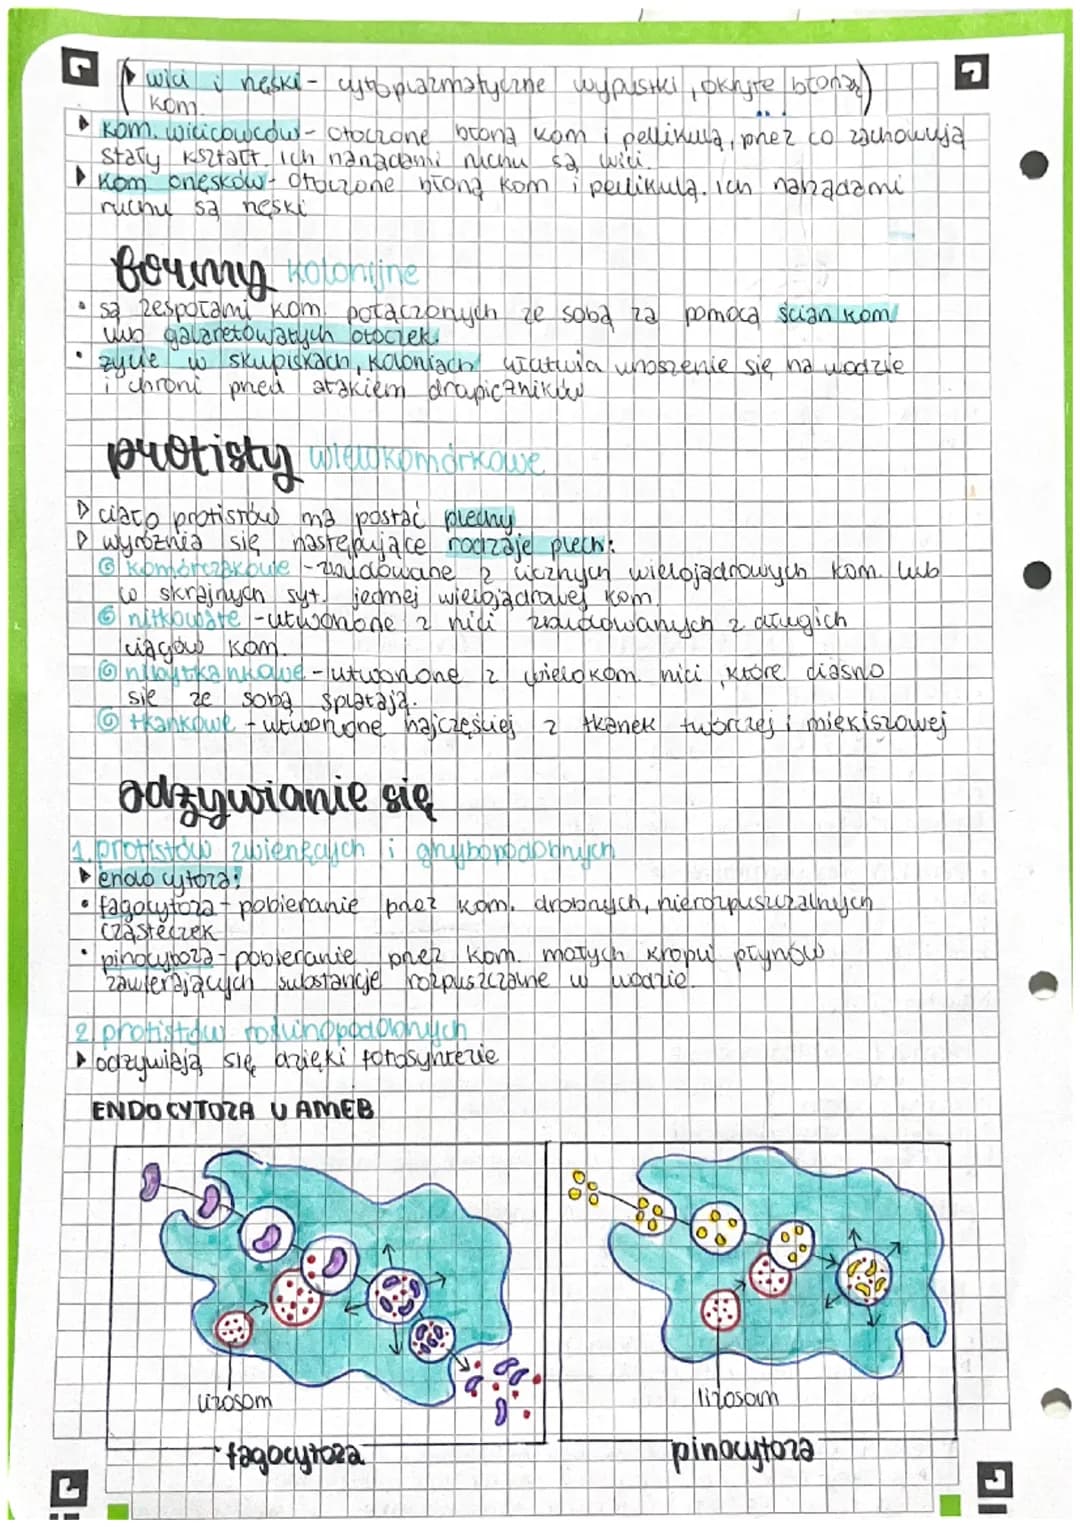 (▶ wici i rzęski - cytoplazmatyczne wypustki, okryte błoną)
kom.
▶ kom. wiciowców - otoczone błoną kom i pellikulą, przez co zachowują
stały kształt. Ich narządami ruchu są wici.
▶ kom orzęsków - otoczone błoną kom i pellikulą. Ich narządami
ruchu są rzęski
formy kolonijne
• są zespołami kom. połączonych ze sobą za pomocą ścian kom
lub galaretowatych otoczek.
• życie w skupiskach, koloniach ułatwia unoszenie się na wodzie
i chroni przed atakiem drapieżników
protisty wielokomórkowe
▷ ciało protistów ma postać plechy
▷ wyróżnia się następujące rodzaje plech:
komórczakowe - zbudowane z licznych wielojądrowych kom. lub
w skrajnych syt. jednej wielojądrowej kom.
nitkowate - utworzone z nici zbudowanych z długich
ciągów kom.
nibytkankowe - utworzone z wielokom. nici, które ciasno
się ze sobą splatają.
tkankowe - utworzone najczęściej z tkanek twórczej i miękiszowej
odżywianie się
1. protistów zwierzęcych i grzybopodobnych
▶ endocytoza:
• fagocytoza - pobieranie przez kom. drobnych, nierozpuszczalnych
cząsteczek
• pinocytoza - pobieranie przez kom. małych kropli płynów
zawierających substancje rozpuszczalne w wodzie.
2. protistów roślinopodobnych
▶ odżywiają się dzięki fotosyntezie
ENDOCYTOZA U AMEB
lizosom
lizosom
fagocytoza
pinocytoza